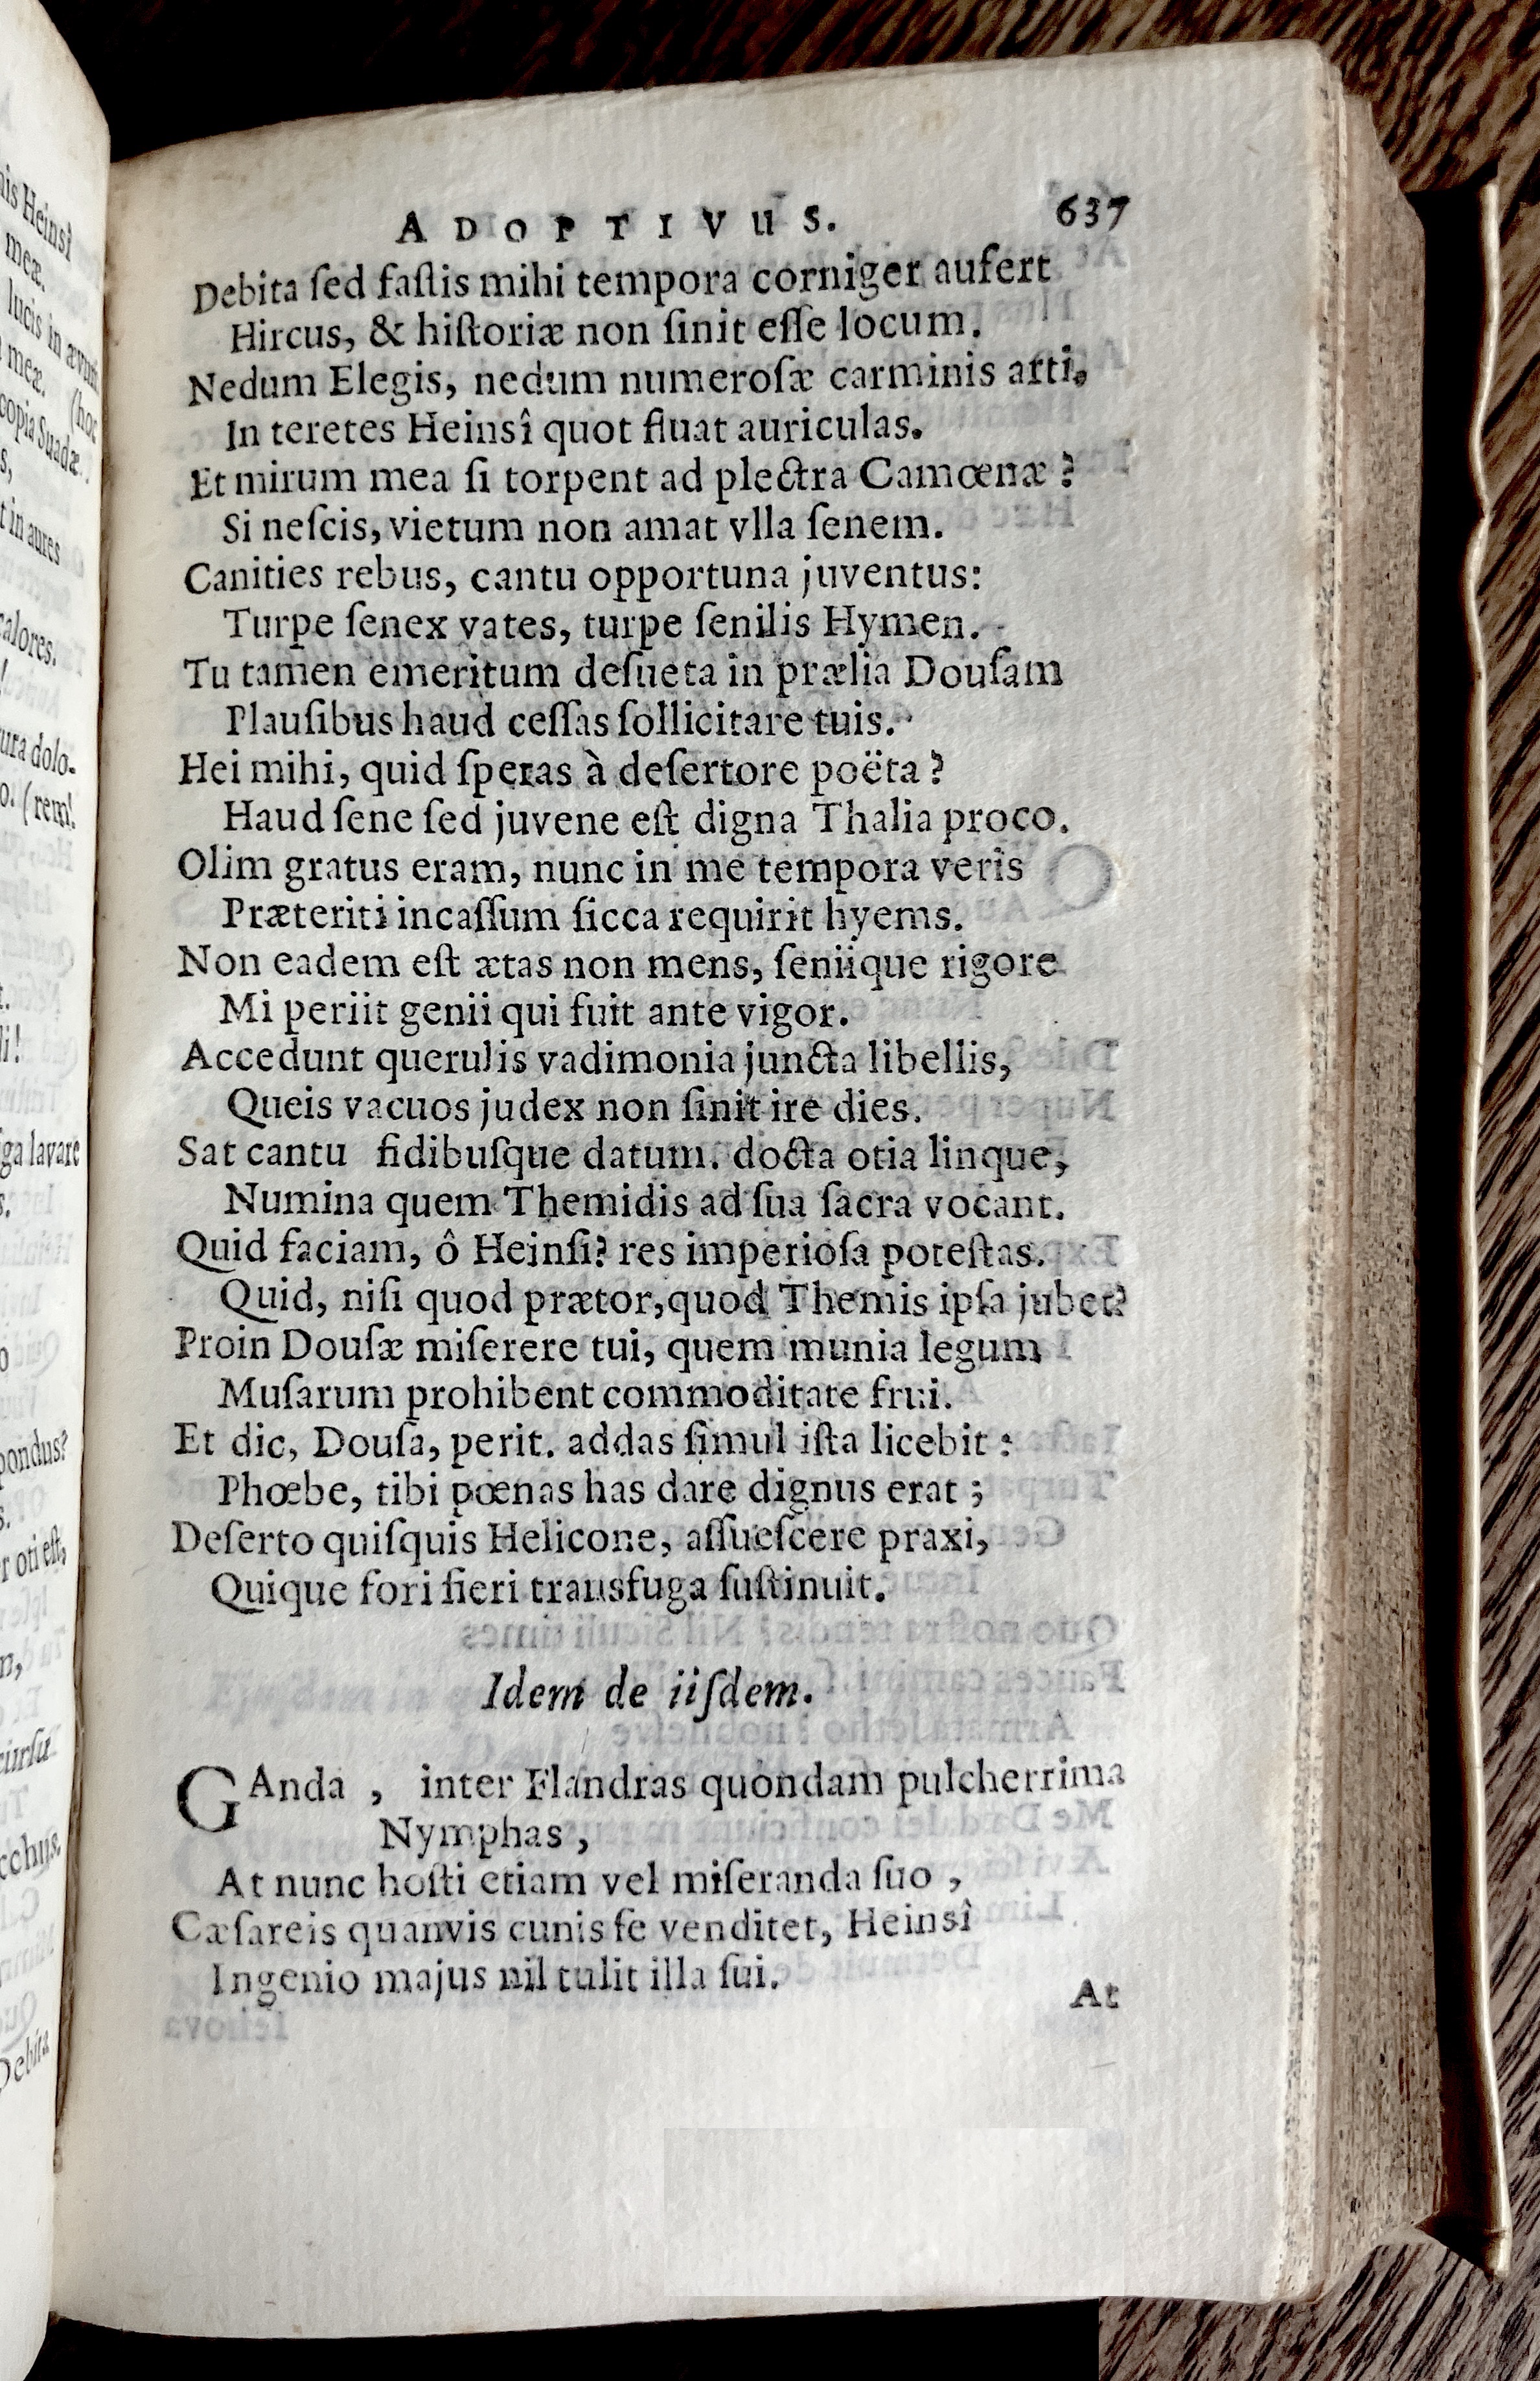 ADOPTIVUS. 637
Debita ſed faſtis mihi tempora corniger aufert
Hircus, & hiſtoriæ non ſinit eſſe locum.
Nedum Elegis, nedum numeroſæ carminis arti,
In teretes Heinsî quot fluat auriculas.
Et mirum mea ſi torpent ad plectra Camœnæ?
Si neſcis, vietum non amat vlla ſenem.
Canities rebus, cantu opportuna juventus:
Turpe ſenex vates, turpe ſenilis Hymen.
Tu tamen emeritum deſueta in prælia Douſam
Plauſibus haud ceſſas ſollicitare tuis.
Hei mihi, quid ſperas à deſertore poëta?
Haud ſene ſed juvene eſt digna Thalia proco.
Olim gratus eram, nunc in me tempora veris
Præteriti incaſſum ſicca requirit hyems.
Non eadem eſt ætas non mens, ſeniique rigore
Mi periit genii qui fuit ante vigor.
Accedunt querulis vadimonia juncta libellis,
Queis vacuos judex non ſinit ire dies.
Sat cantu fidibuſque datum. docta otia linque,
Numina quem Themidis ad ſua ſacra vocant.
Quid faciam, ô Heinſi? res imperioſa poteſtas.
Quid, niſi quod prætor, quod Themis ipſa jubet?
Proin Douſæ miſerere tui, quem munia legum
Muſarum prohibent commoditate frui.
Et dic, Douſa, perit. addas ſimul iſta licebit:
Phœbe, tibi pœnas has dare dignus erat;
Deſerto quiſquis Helicone, aſſueſcere praxi,
Quique fori fieri transfuga ſuſtinuit.
Idem de iiſdem.
GAnda, inter Flandras quondam pulcherrima
Nymphas,
At nunc hoſti etiam vel miſeranda ſuo,
Cæſareis quanvis cunis ſe venditet, Heinsî
Ingenio majus nil tulit illa ſui.
At